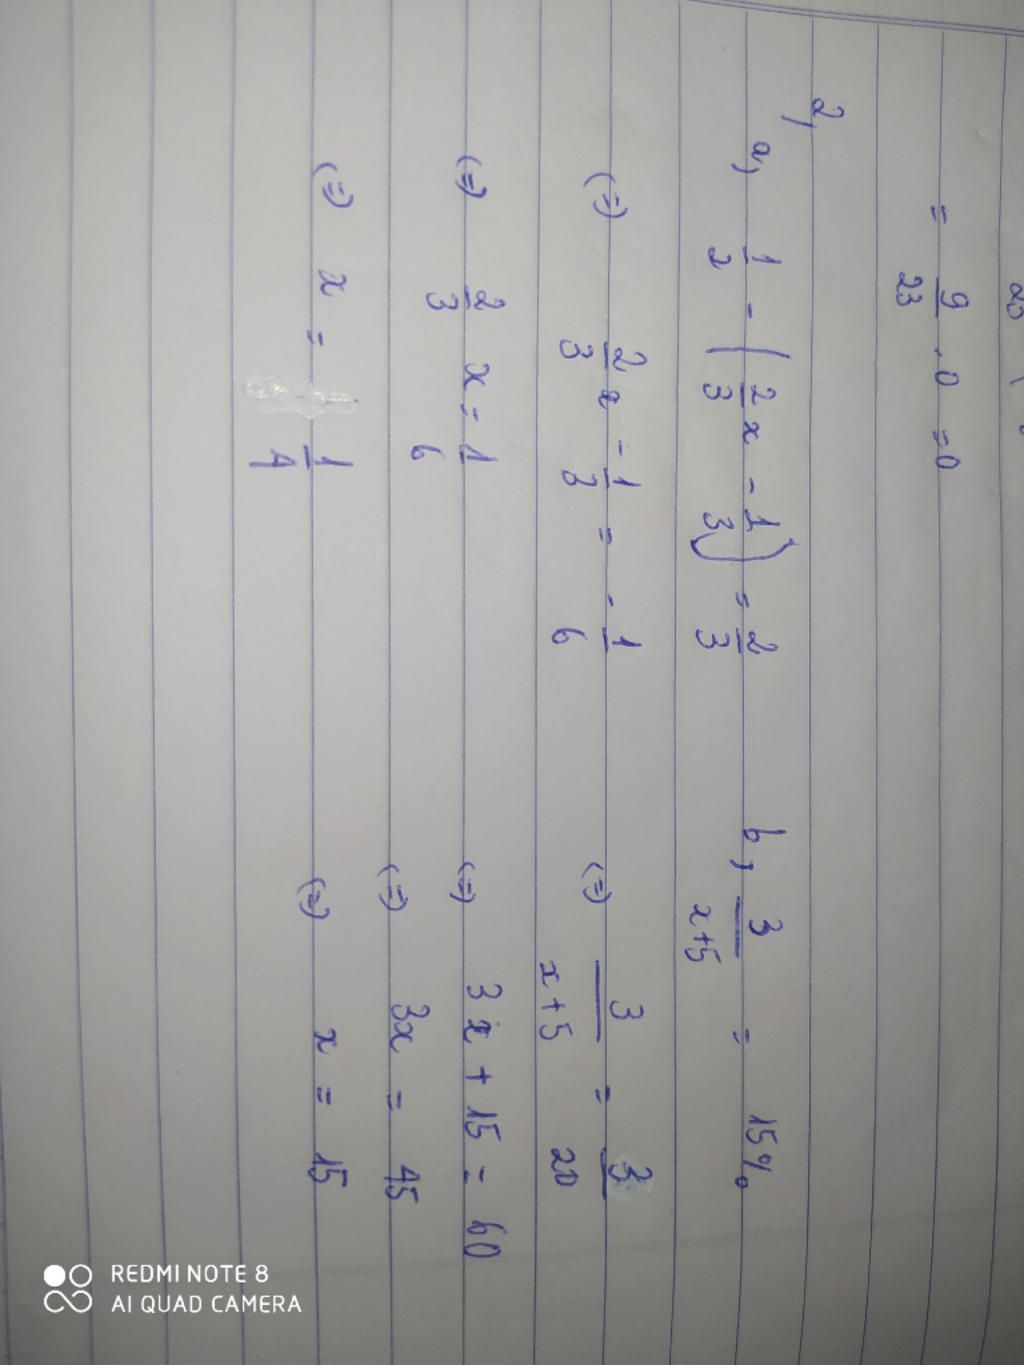 = 9/23 . 0 = 0
2,
a, 1/2 - (2/3 x - 1/3) = 2/3
(=) 2/3 x - 1/3 = - 1/6
(=) 2/3 x = 1/6
(=) x = 1/4
b, 3/x+5 = 15%
(=) 3/x+5 = 3/20
(=) 3x + 15 = 60
(=) 3x = 45
(=) x = 15
REDMI NOTE 8
AI QUAD CAMERA